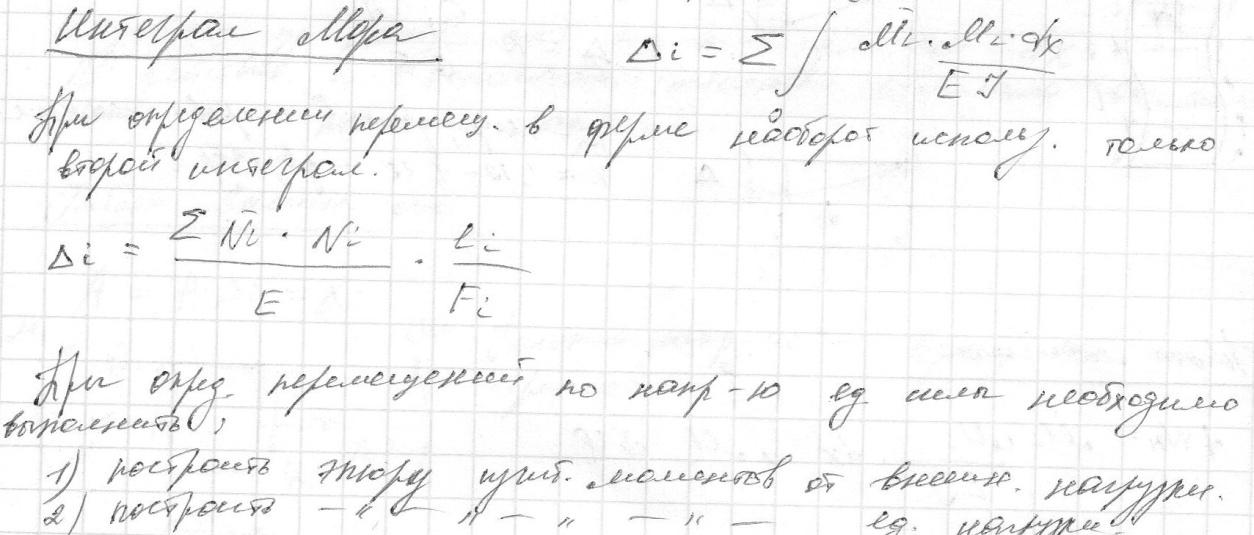 Интеграл Мора Δi = Σ ∫ M̄i · Mi · dx / EJ
При определении перемещ. в ферме наоборот использ. только
второй интеграл.
Δi = Σ N̄i · Ni / E · ℓi / Fi
При опред. перемещений по напр-ю ед силы необходимо
выполнить;
1) построить эпюру изгиб. моментов от внешн. нагрузки.
2) построить — „ — „ — „ — „ — ед. нагрузки.